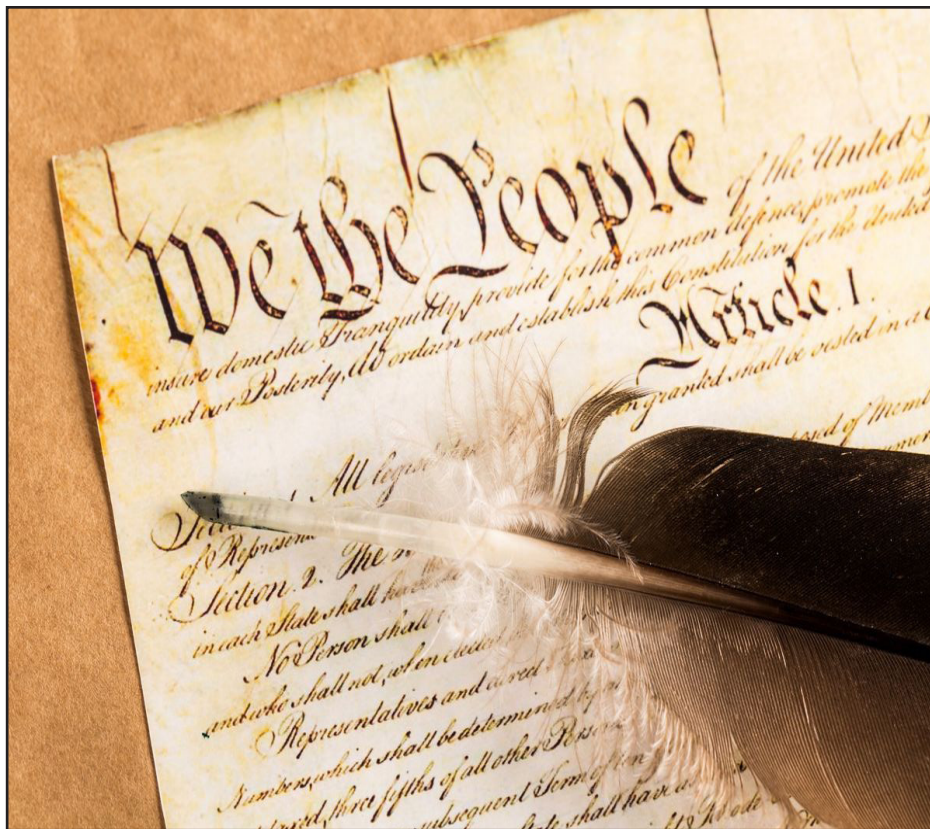 We the People of the United
insure domestic Tranquility, provide for the common defence, promote the
and our Posterity, do ordain and establish this Constitution for the United
Article. I.
granted shall be vested in a
All legislative
of Represen
Section. 2. The
in each State shall have
No Person shall
and who shall not, when elected
Representatives and direct Taxes
Numbers, which shall be determined by
three fifths of all other Persons
subsequent Term of ten
State shall have